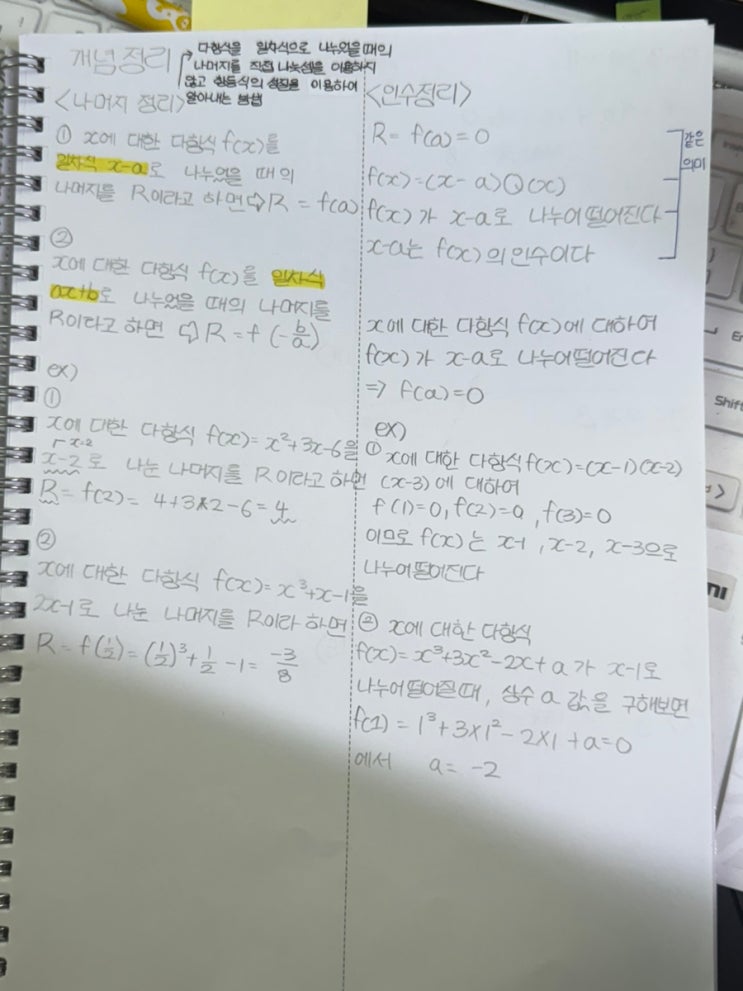 개념정리
→ 다항식을 일차식으로 나누었을 때의
나머지를 직접 나눗셈을 이용하지
않고 항등식의 성질을 이용하여
알아내는 방법
<나머지 정리>
① x에 대한 다항식 f(x)를
일차식 x-a로 나누었을 때의
나머지를 R이라고 하면 ⇨ R = f(a)
②
x에 대한 다항식 f(x)를 일차식
ax+b로 나누었을 때의 나머지를
R이라고 하면 ⇨ R = f(-b/a)
ex)
①
x에 대한 다항식 f(x)= x²+3x-6을
x=2
x-2로 나눈 나머지를 R이라고 하면
R = f(2) = 4+3×2-6=4
②
x에 대한 다항식 f(x)=x³+x-1을
2x-1로 나눈 나머지를 R이라 하면
R = f(1/2) = (1/2)³+1/2-1= -3/8
<인수정리>
R = f(a) = 0
f(x)=(x-a)Q(x)
f(x)가 x-a로 나누어떨어진다
x-a는 f(x)의 인수이다
같은
의미
x에 대한 다항식 f(x)에 대하여
f(x)가 x-a로 나누어떨어진다
⇒ f(a)=0
ex)
① x에 대한 다항식 f(x)=(x-1)(x-2)
(x-3)에 대하여
f(1)=0, f(2)=0, f(3)=0
이므로 f(x)는 x-1, x-2, x-3으로
나누어떨어진다
② x에 대한 다항식
f(x)=x³+3x²-2x+a가 x-1로
나누어떨어질때, 상수 a 값을 구해보면
f(1) = 1³+3×1²-2×1+a=0
에서 a= -2
Shift